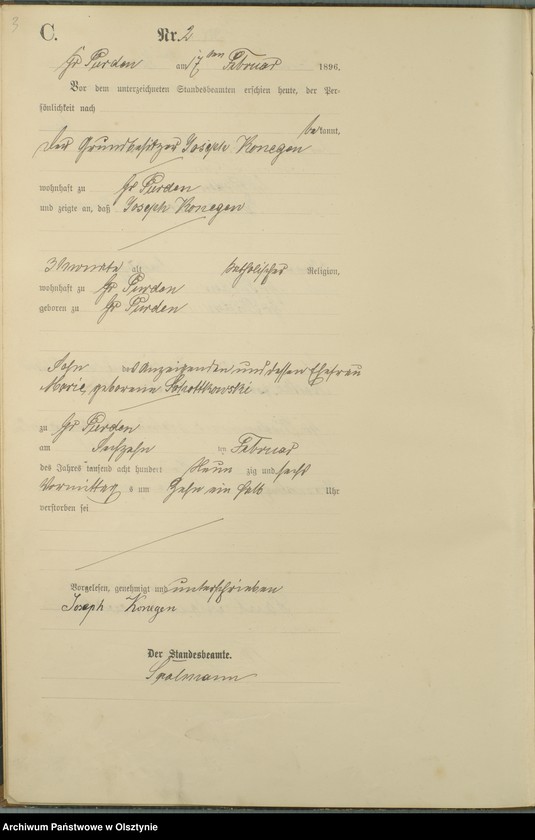 3
C.
Nr. 2
Gr Purden am 17ten Februar 1896.
Vor dem unterzeichneten Standesbeamten erschien heute, der Per-
sönlichkeit nach
bekannt,
der Grundbesitzer Joseph Konegen
wohnhaft zu Gr Purden
und zeigte an, daß Joseph Konegen
3 Monate alt katholischer Religion,
wohnhaft zu Gr Purden
geboren zu Gr Purden
Sohn des Anzeigenden und dessen Ehefrau
Marie, geborene Schottkowski
zu Gr Purden
am Sechzehn ten Februar
des Jahres tausend acht hundert Neun zig und sechs
Vormittags um Zehn ein halb Uhr
verstorben sei
Vorgelesen, genehmigt und unterschrieben
Joseph Konegen
Der Standesbeamte.
Archiwum Państwowe w Olsztynie